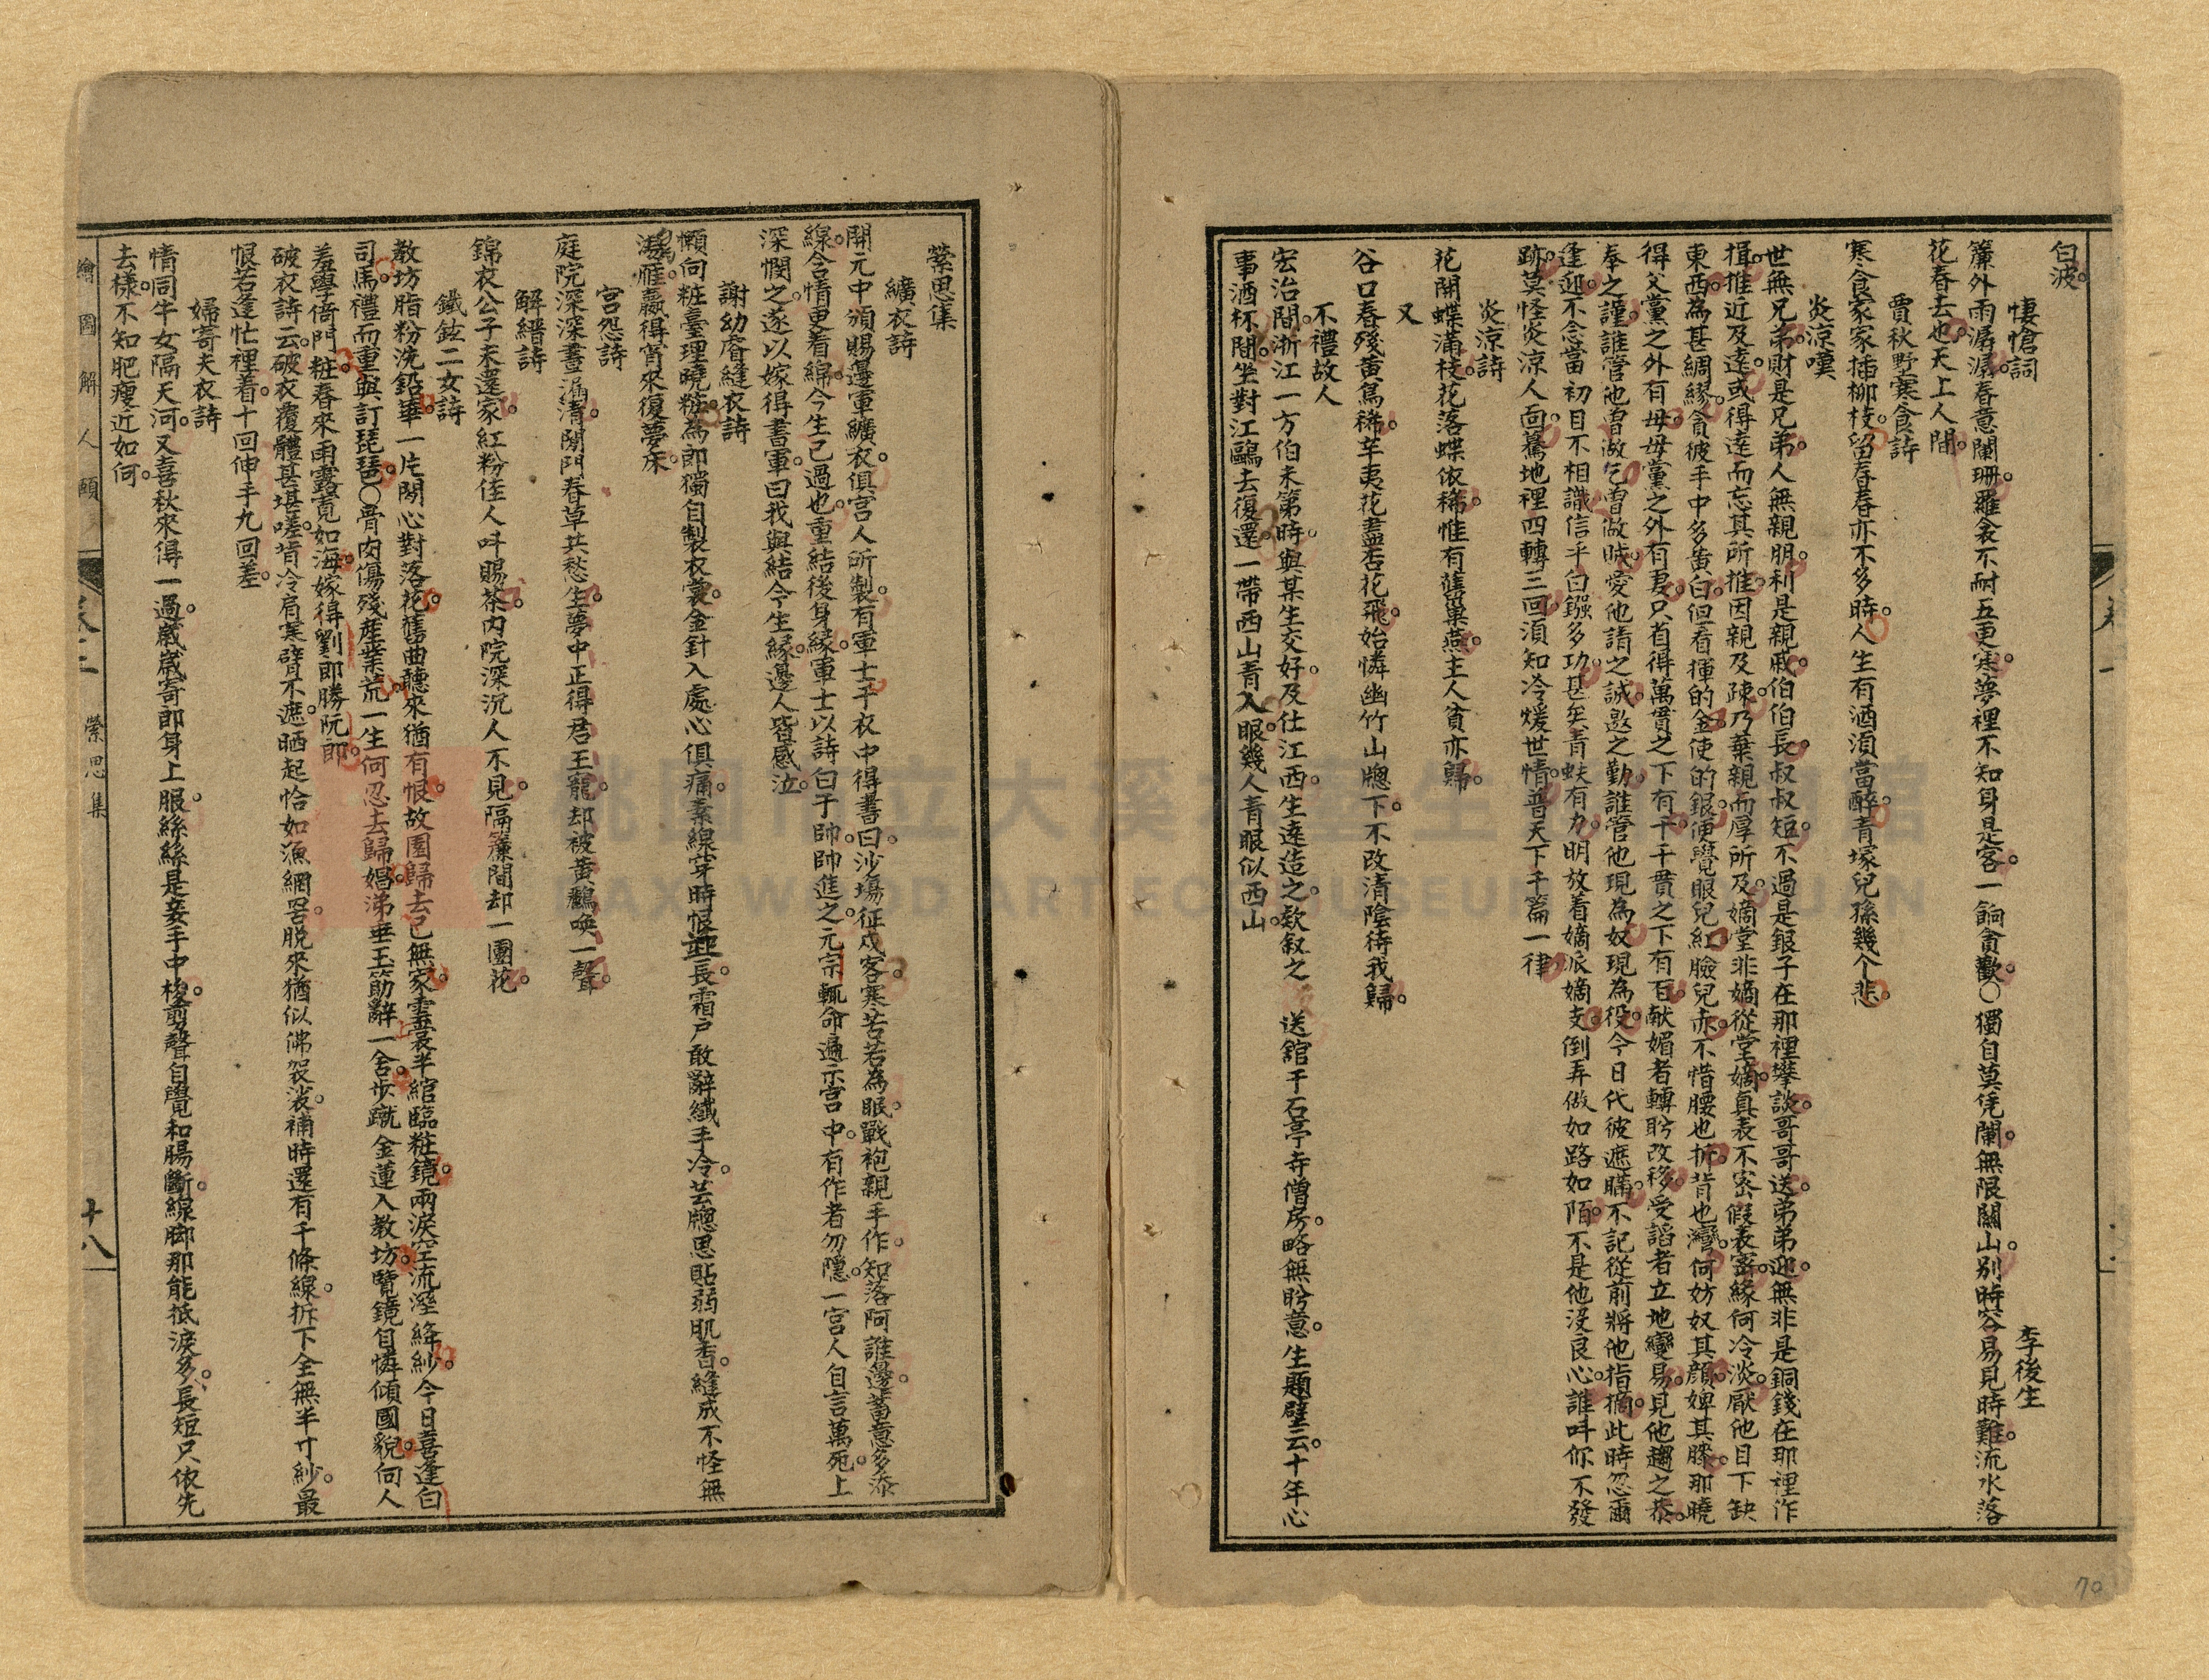 白波。
悽愴詞　李後生
簾外雨潺潺。春意闌珊。羅衾不耐五更寒。夢裡不知身是客。一餉貪歡。○獨自莫凭闌。無限關山。別時容易見時難。流水落
花春去也。天上人間。
賈秋野寒食詩
寒食家家插柳枝。留春春亦不多時。人生有酒須當醉。青塚兒孫幾个悲。
炎涼嘆
世無兄弟。財是兄弟。人無親朋。利是親戚。伯伯長。叔叔短。不過是銀子在那裡攀談。哥哥送。弟弟迎。無非是銅錢在那裡作
揖。推近及遠。或得遠而忘其所推。因親及疎。乃棄親而厚所及。嫡堂非嫡。從堂嫡。真表不密。假表密。緣何冷淡。厭他目下缺
東西。為甚綢繆。貪彼手中多黃白。但看揮的金。使的銀。便覺眼兒紅。臉兒赤。不惜腰也折。背也灣。何妨奴其顏。婢其膝。那曉
得父黨之外有母。母黨之外有妻。只首得萬貫之下有千。千貫之下有百。献媚者轉盻改移。受諂者立地變易。見他趨之恭。
奉之謹。誰管他曾做乞。曾做賊。愛他請之誠。邀之勤。誰管他現為奴。現為役。今日代彼遮瞞。不記從前將他指摘。此時忽爾
逢迎。不念當初目不相識。信乎白鏹多功。甚矣青蚨有力。明放着嫡派嫡支。倒弄做如路如陌。不是他沒良心。誰叫你不發
跡。莫怪炎涼人面。驀地裡四轉三回。須知冷煖世情。普天下千篇一律。
炎涼詩
花開蝶滿枝。花落蝶依稀。惟有舊巢燕。主人貧亦歸。
又
谷口春殘黃鳥稀。辛夷花盡杏花飛。始憐幽竹山牕下。不改清陰待我歸。
不禮故人
宏治間。浙江一方伯未第時。與某生交好。及仕江西。生遠造之。欵叙之　送館千石亭寺僧房。略無盻意。生題壁云。十年心
事酒杯間。坐對江鷗去復還。一帶西山青入眼。幾人青眼似西山。
縈思集
纊衣詩
開元中頒賜邊軍纊衣。俱宮人所製。有軍士于衣中得書曰。沙場征戍客。寒苦若為眠。戰袍親手作。知落阿誰邊。蓄意多添
線。含情更着綿。今生已過也。重結後身緣。軍士以詩白于帥。帥進之。元宗輒命遍示宮中。有作者勿隱。一宮人自言萬死。上
深憫之。遂以嫁得書軍。曰我與結今生緣。邊人皆感泣。
謝幼睿縫衣詩
懶向粧臺理曉粧。為郎獨自製衣裳。金針入處心俱痛。素線穿時恨迎長。霜户敢辭纖手冷。芸牕思貼弱肌香。縫成不怪無
鴻雁。贏得宵來復夢床。
宮怨詩
庭院深深晝漏清。閑門春草共愁生。夢中正得君王寵。却被黄鸝喚一聲。
解縉詩
錦衣公子未還家。紅粉佳人叫賜茶。內院深沉人不見。隔簾間却一團花。
鐵鉉二女詩
教坊脂粉洗鉛華。一片閑心對落花。舊曲聽來猶有恨。故園歸去已無家。雲裳半綰臨粧鏡。兩淚空流溼絳紗。今日喜逢白
司馬。禮而重與訂琵琶。○骨肉傷殘產業荒。一生何忍去歸娼。涕垂玉筯辭一舍。步蹴金蓮入教坊。覽鏡自憐傾國貌。向人
羞學倚門粧。春來雨露寬如海。嫁得劉郎勝阮郎。
破衣詩云。破衣覆體甚堪嗟。背冷肩寒臂不遮。晒起恰如漁網罟。脫來猶似佛袈裟。補時還有千條線。拆下全無半寸紗。最
恨若逢忙裡着。十回伸手九回差。
婦寄夫衣詩
情同牛女隔天河。又喜秋來得一過。歲歲寄郎身上服。絲絲是妾手中梭。剪聲自覺和腸斷。線脚那能抵淚多。長短只依先
去樣。不知肥瘦近如何。
繪圖解人頤　卷二　縈思集　十八
70
桃園市立大溪木藝生態博物館
DAXI WOOD ART ECOMUSEUM, TAOYUAN